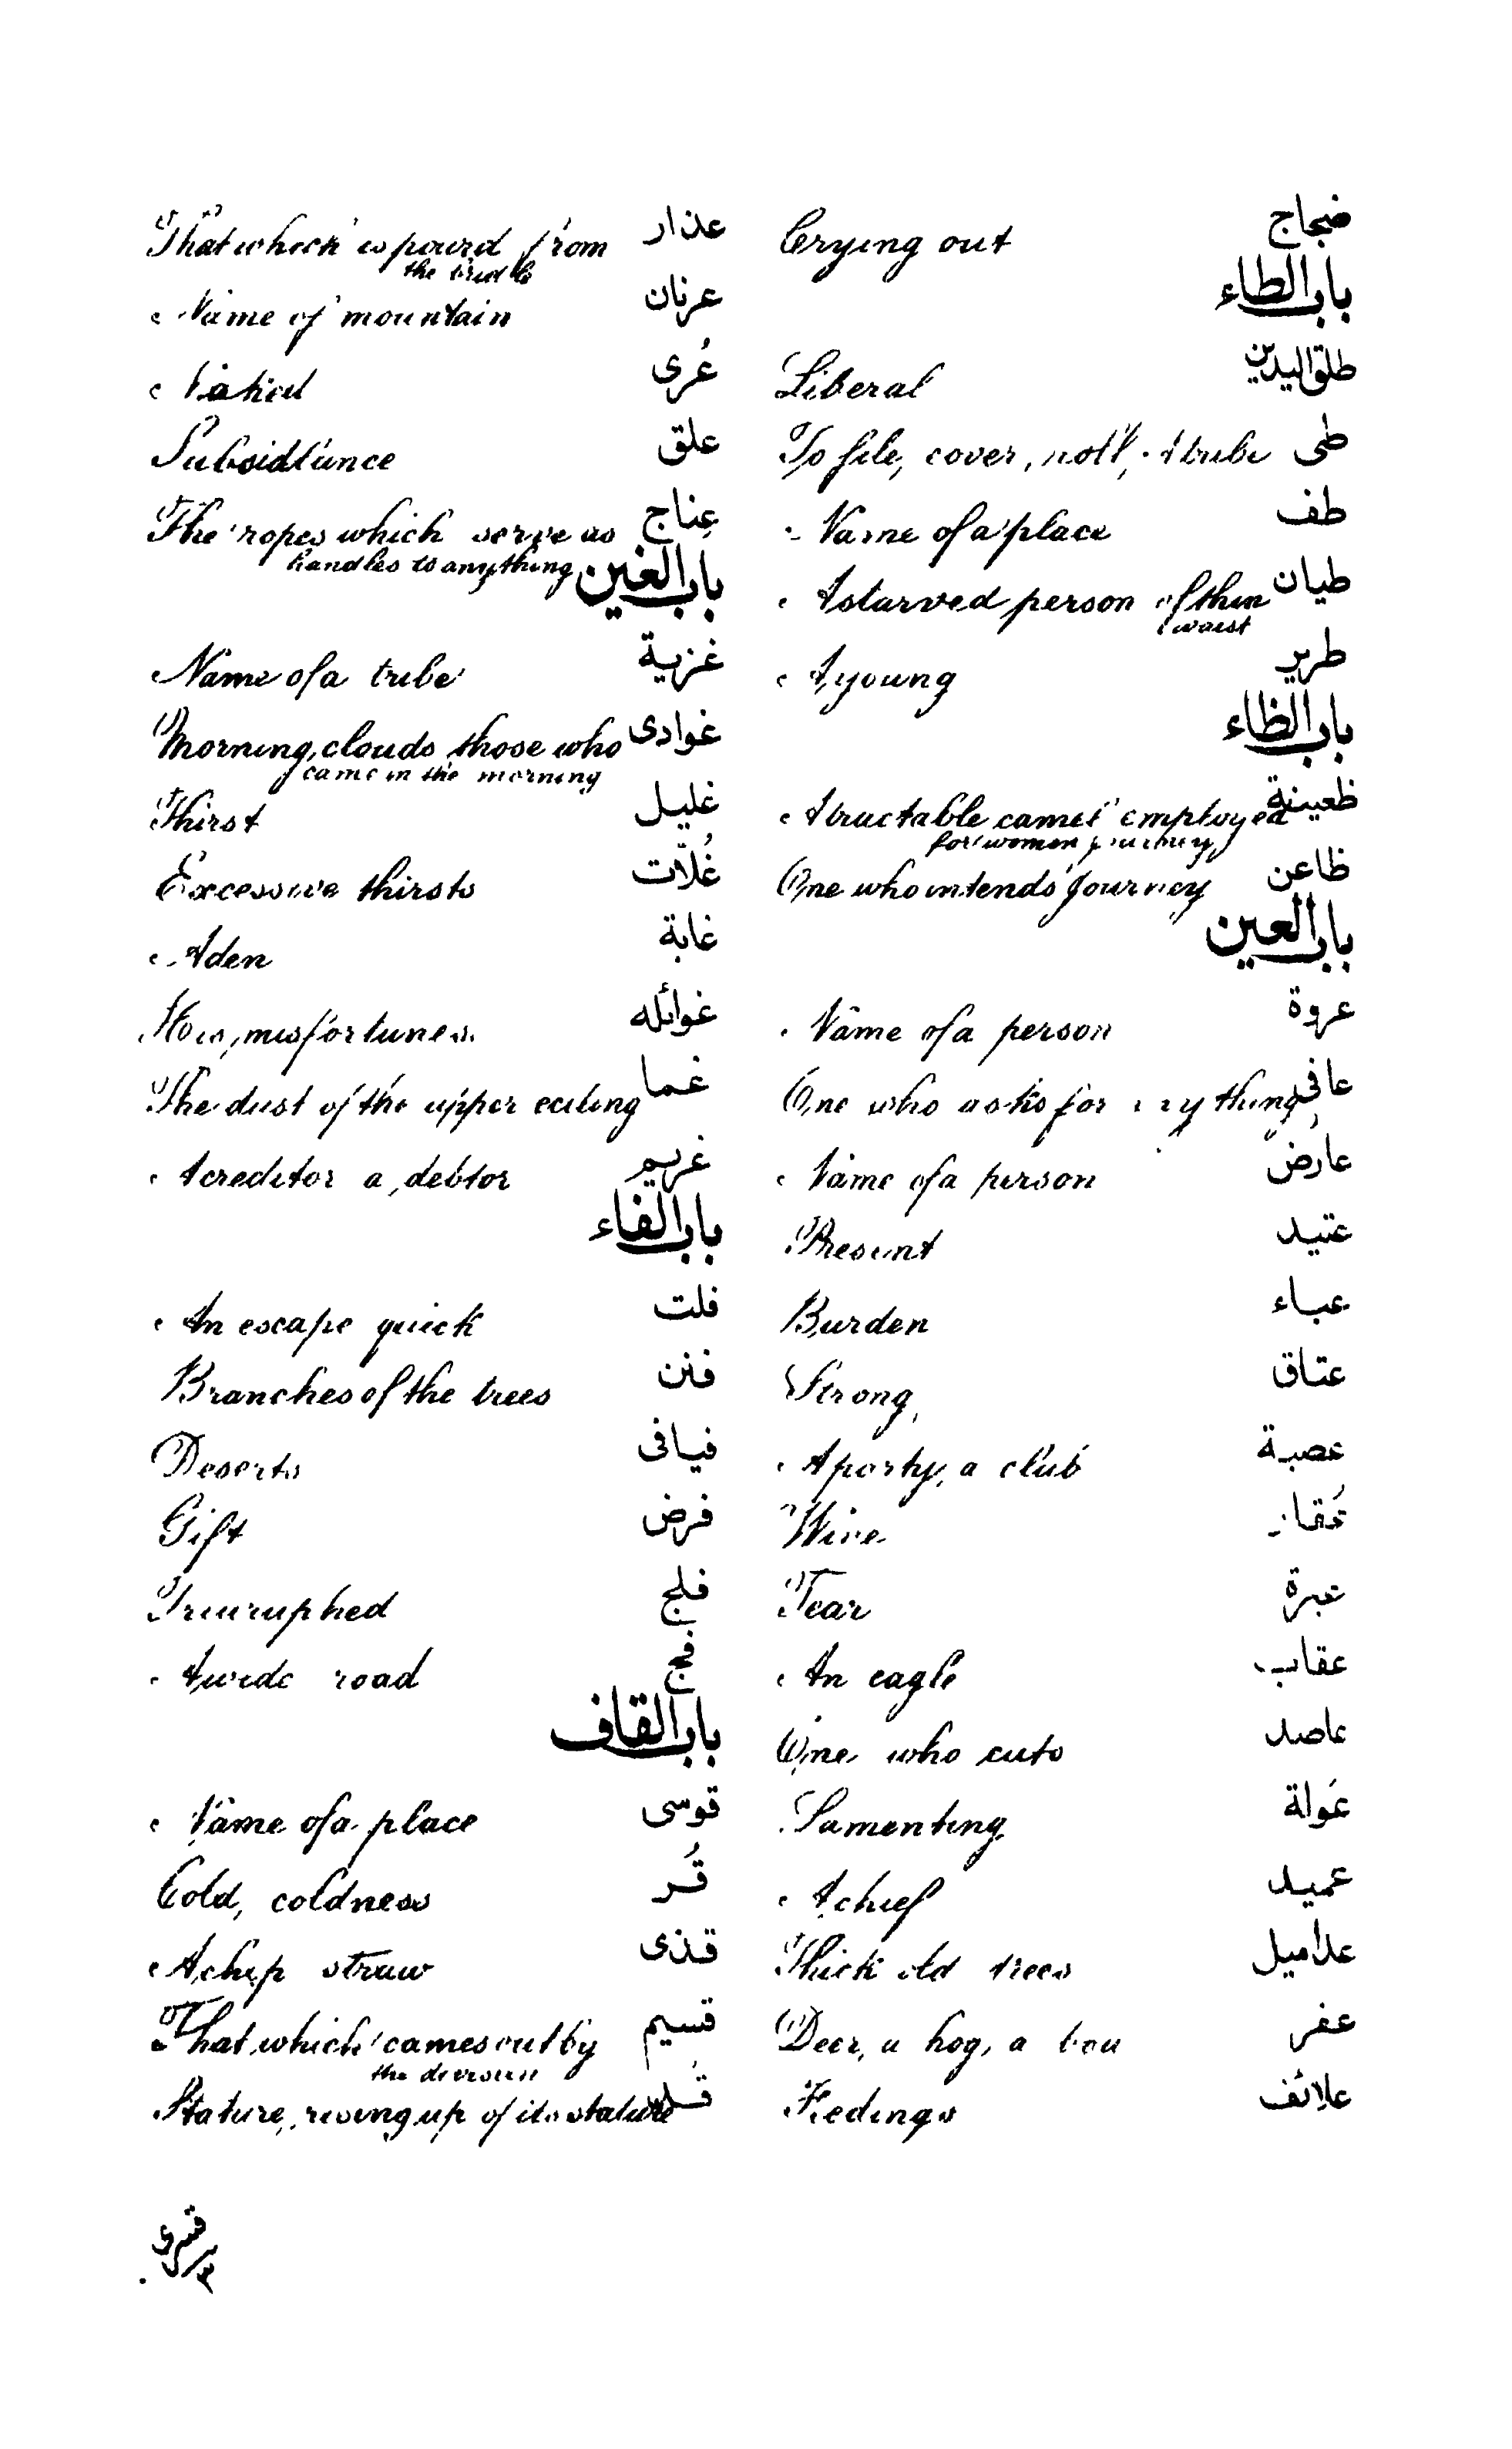 ضجاج Crying out
باب الطاء
طلق اليدين Liberal
طى To file, cover,
طف Name of a place
طيان A starved person of thin
waist
طرير A young
باب الظاء
ظعينة A tructable camel employed
for women
ظاعن One who intends Journey
باب العين
عروة Name of a person
عافى One who asks for thing
عارض Name of a person
عتيد Present
عباء Burden
عتاق Strong
عصبة A party, a club
عُقار Wine
عبرة Tear
عقاب An eagle
عاصد One who cuts
عَولة Lamenting
عميد A chief
علاميل Thick old trees
عفر Deer, a hog, a
علائف Feedings
عذار That which is pourd from
the
عرنان Name of mountain
عُرى Naked
علق
عِناج The ropes which serve as
handles to anything
باب الغين
غزية Name of a tribe
غوادى Morning, clouds those who
came in the morning
غليل Thirst
غُلاّت Excessive thirsts
غابة A den
غوائله misfortunes.
غما The dust of the upper ceiling
غريم A creditor a, debtor
باب الفاء
فلت An escape quick
فنن Branches of the trees
فيافى Deserts
فرض Gift
فلج Triumphed
فج A wide road
باب القاف
قوسى Name of a place
قُر Cold, coldness
قذى A chip straw
قسيم That which comes out by
the
Stature, rising up of its stature